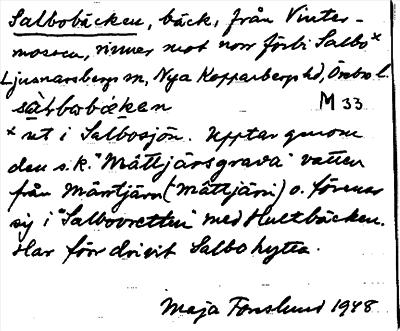 Salbobäcken, bäck, från Vinter-
mossen, rinner mot norr förbi Salbo x
Ljusnarsbergs sn, Nya Kopparbergs hd, Örebro l.
sàlbobä̀ken M 33
x ut i Salbosjön. Upptar genom
den s.k. "Måttjärsgrava" vatten
från Mårrtjärn ("Måttjärn") o. förenar
sig i "Salbovretten" med Hultbäcken.
Har förr drivit Salbo hytta.
Maja Forslund 1948